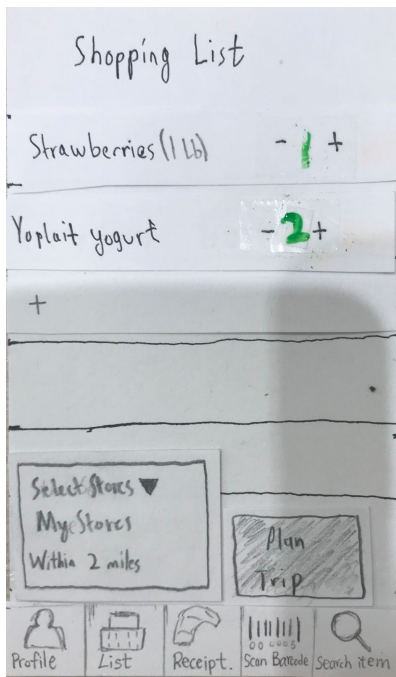 Shopping List
Strawberries (1 Lb) - 1 +
Yoplait yogurt - 2 +
+
Select Stores ▼
My Stores
Within 2 miles
Plan
Trip
Profile
List
Receipt.
Scan Barcode
Search item